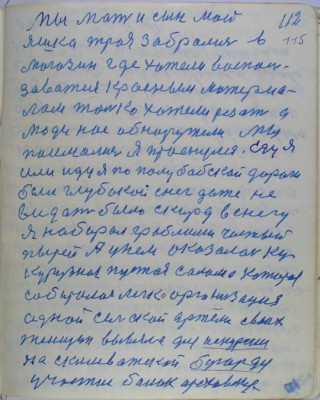 Мы мать и сын мой 112
115
яшка трая забрался в
могозин где хотели воспол-
заватся красным матерыа-
лам только хотели резат а
люди нас обнаружили мы
поимался я проснулся. Еду я
или иду я по полу бабской дороги
были глубокой снег даже не
видат было скирд в снегу
я набирал граблями чистый
пырей А унем оказалас ку-
курузная пустая салома которая
собиралас легко организация
одной сельской артели своих
женщин вывела для
на скалеватской бугорду
участие балок ореховые